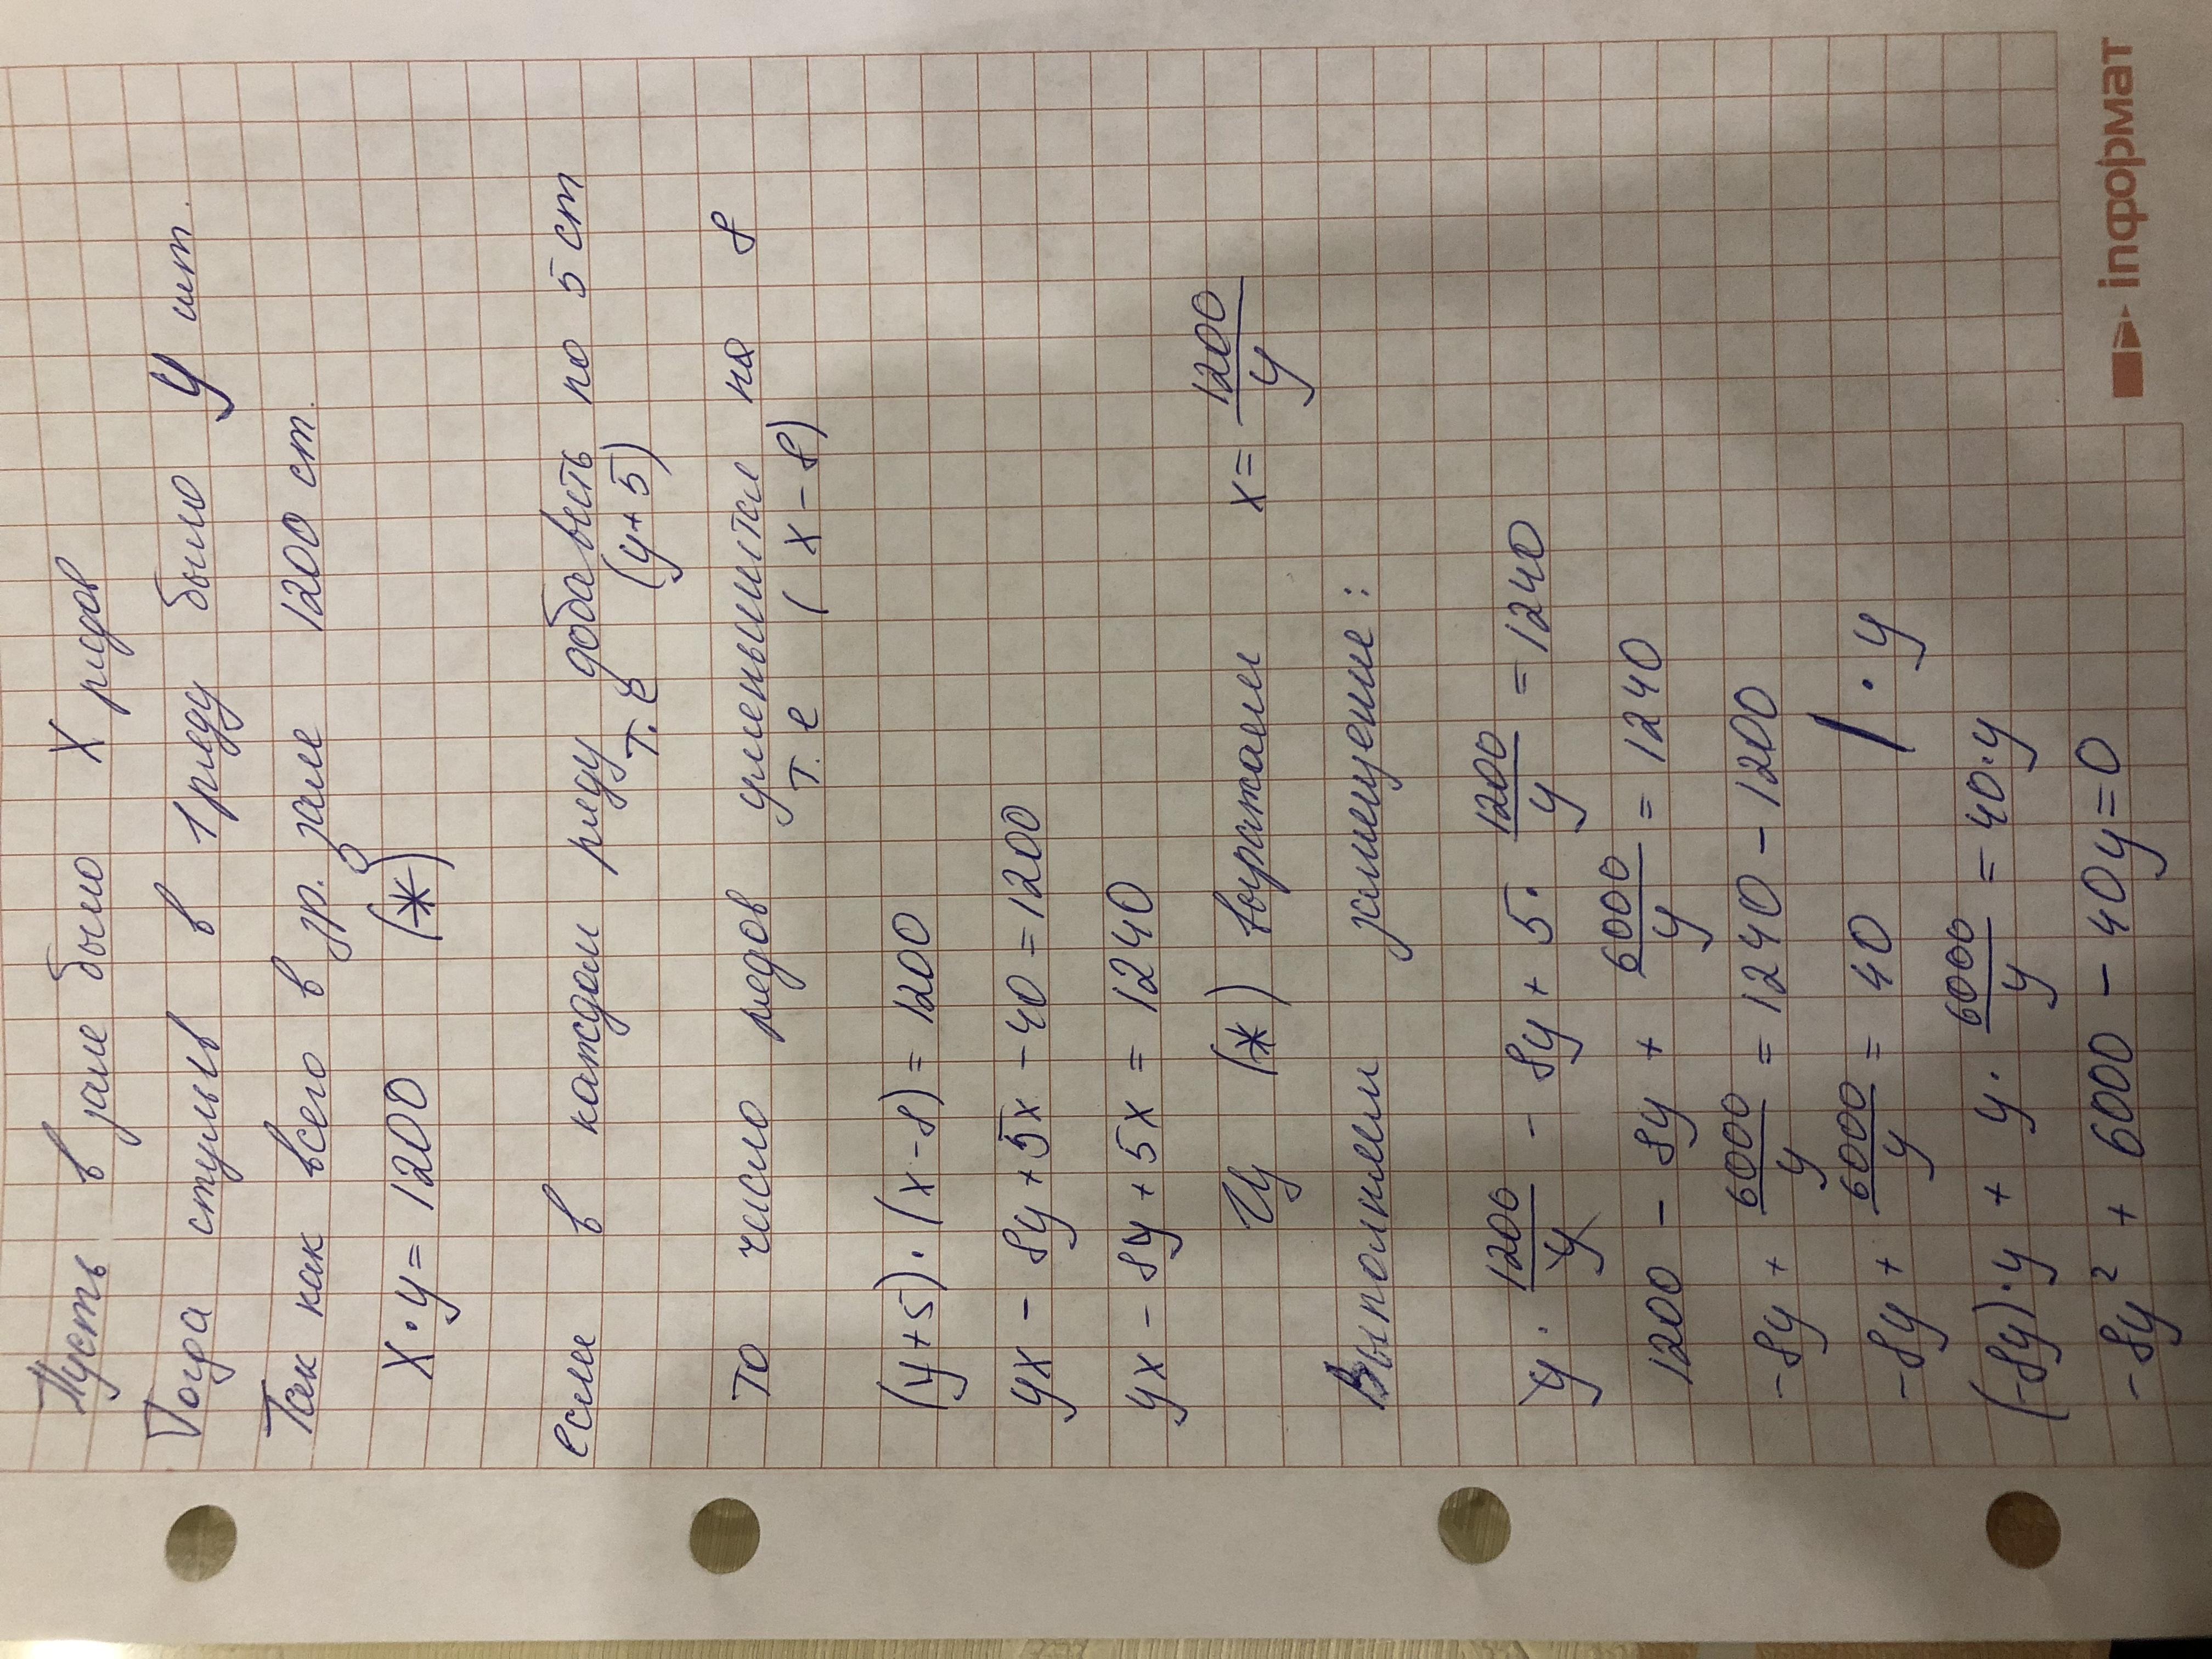 Пусть в зале было X рядов
Тогда стульев в 1 ряду было y шт.
Так как всего в зр. зале 1200 ст.
X · y = 1200 (*)
если в каждом ряду добавить по 5 ст
т. е (y + 5)
то число рядов уменьшится на 8
т. е (x - 8)
(y + 5) · (x - 8) = 1200
yx - 8y + 5x - 40 = 1200
yx - 8y + 5x = 1240
Из (*) выразаем x = 1200/y
Выполняем замещение:
y · 1200/y - 8y + 5 · 1200/y = 1240
1200 - 8y + 6000/y = 1240
-8y + 6000/y = 1240 - 1200
-8y + 6000/y = 40 / · y
(-8y) · y + y · 6000/y = 40 · y
-8y² + 6000 - 40y = 0
inформат